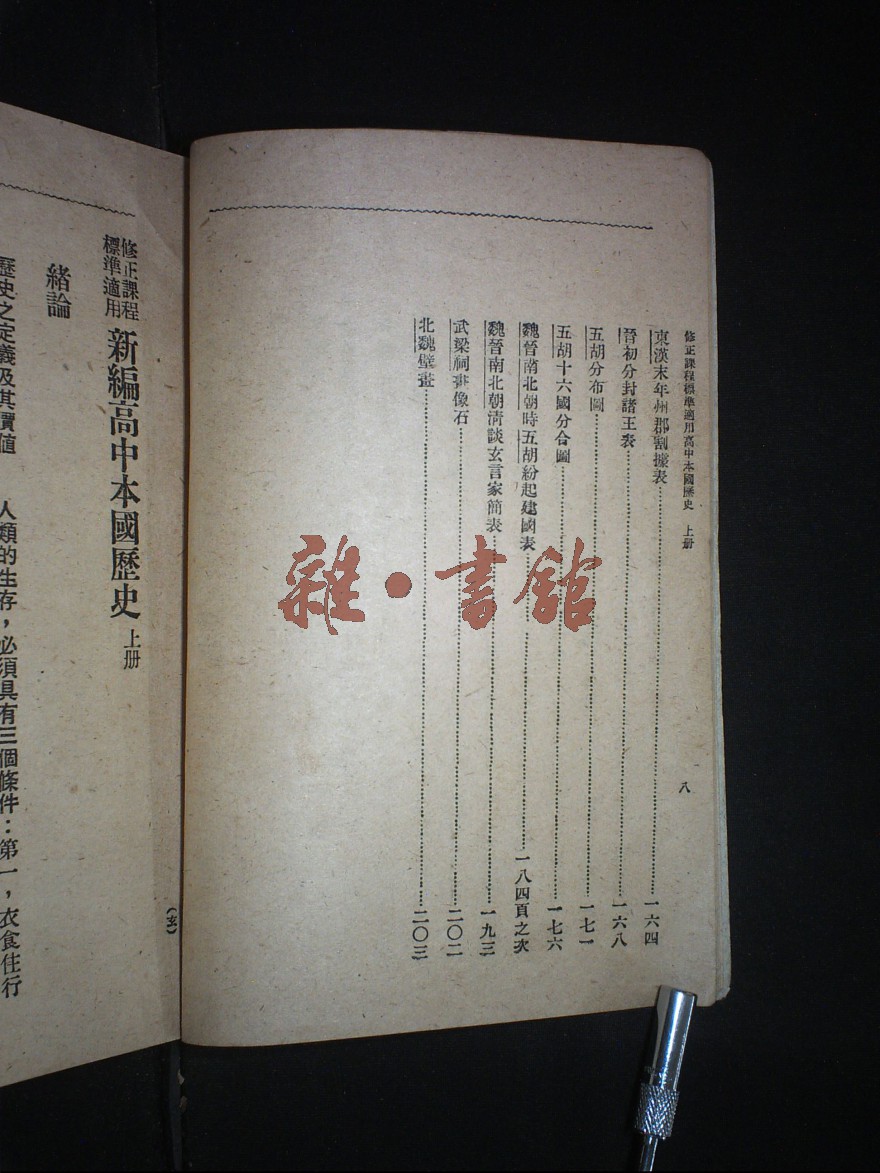 修正課程標準適用高中本國歷史 上册
八
東漢末年州郡割據表……一六四
晉初分封諸王表……一六八
五胡分布圖……一七一
五胡十六國分合圖……一七六
魏晉南北朝時五胡紛起建國表……一八四頁之次
魏晉南北朝清談玄言家簡表……一九三
武梁祠畫像石……二〇二
北魏壁畫……二〇三
修正課程
標準適用
新編高中本國歷史 上册
緒論
歷史之定義及其價值 人類的生存，必須具有三個條件：第一，衣食住行
(玄)
雜·書館